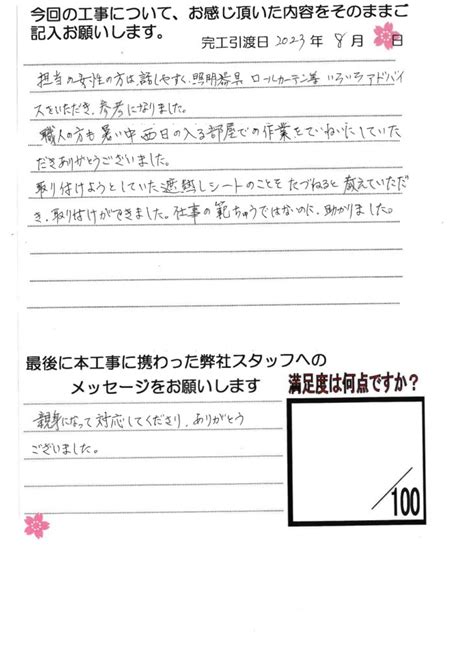 今回の工事について、お感じ頂いた内容をそのままご
記入お願いします。
完工引渡日 2023年 8月 日
担当の女性の方は、話しやすく、照明器具 ロールカーテン等 いろいろアドバイ
スをいただき、参考になりました。
職人の方も暑い中西日の入る部屋での作業をていねいにしていた
だきありがとうございました。
取り付けようとしていた遮熱しシートのことをたづねると教えていただ
き、取り付けができました。仕事の範ちゅうではないのに、助かりました。
最後に本工事に携わった弊社スタッフへの
メッセージをお願いします
満足度は何点ですか?
親身になって対応してくださり、ありがとう
ございました。
/100